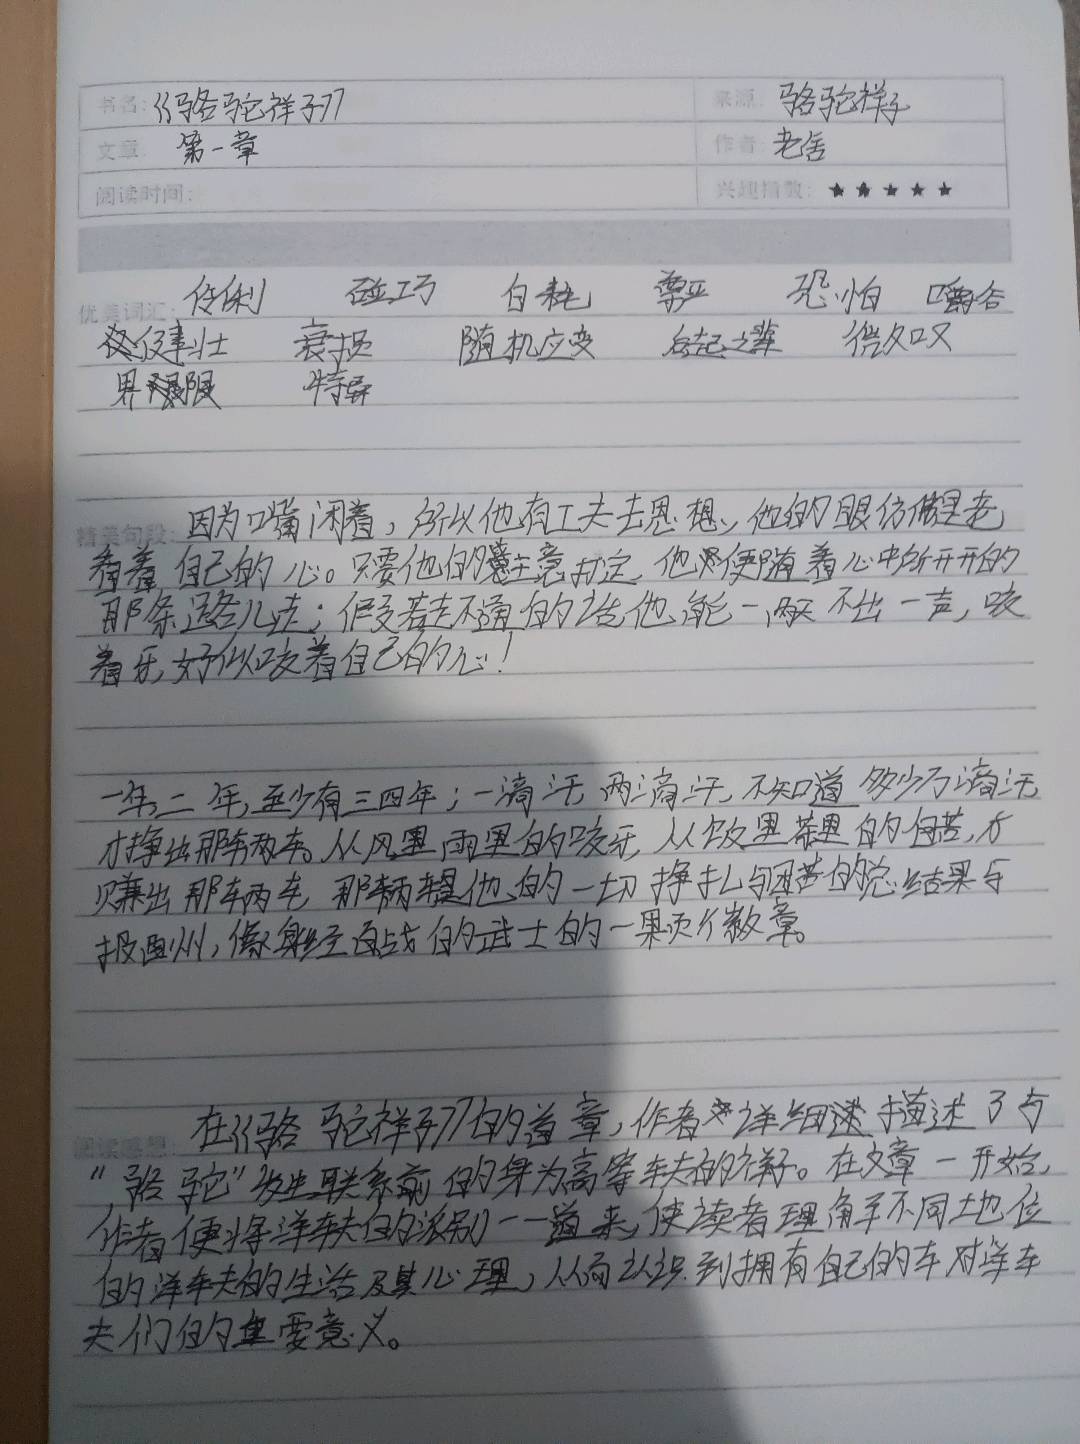 书名:《骆驼祥子》 来源: 骆驼祥子
文章: 第一章 作者: 老舍
阅读时间: 兴趣指数: ★★★★★
优美词汇: 伶俐 碰巧 白耗 尊严 恐怕 嚼谷
健壮 衰损 随机应变 后起之辈
界限 特异
精美句段: 因为嘴闲着,所以他有工夫去思想,他的眼仿佛是老
看着自己的心。只要他的主意打定,他便随着心中所开开的
那条路儿走;假若走不通的话,他能一两天不出一声,咬
着牙,好似咬着自己的心!
一年,二年,至少有三四年;一滴汗,两滴汗,不知道多少万滴汗,
才挣出那辆车。从风里雨里的咬牙,从饭里茶里的自苦,才
赚出那辆车。那辆车是他的一切挣扎与困苦的总结果与
报酬,像身经百战的武士的一颗徽章。
阅读感想: 在《骆驼祥子》的首章,作者详细描述了与
“骆驼”发生联系前的身为高等车夫的祥子。在文章一开始,
作者便将洋车夫的派别一一道来,使读者理解不同地位
的洋车夫的生活及其心理,从而认识到拥有自己的车对洋车
夫们的重要意义。